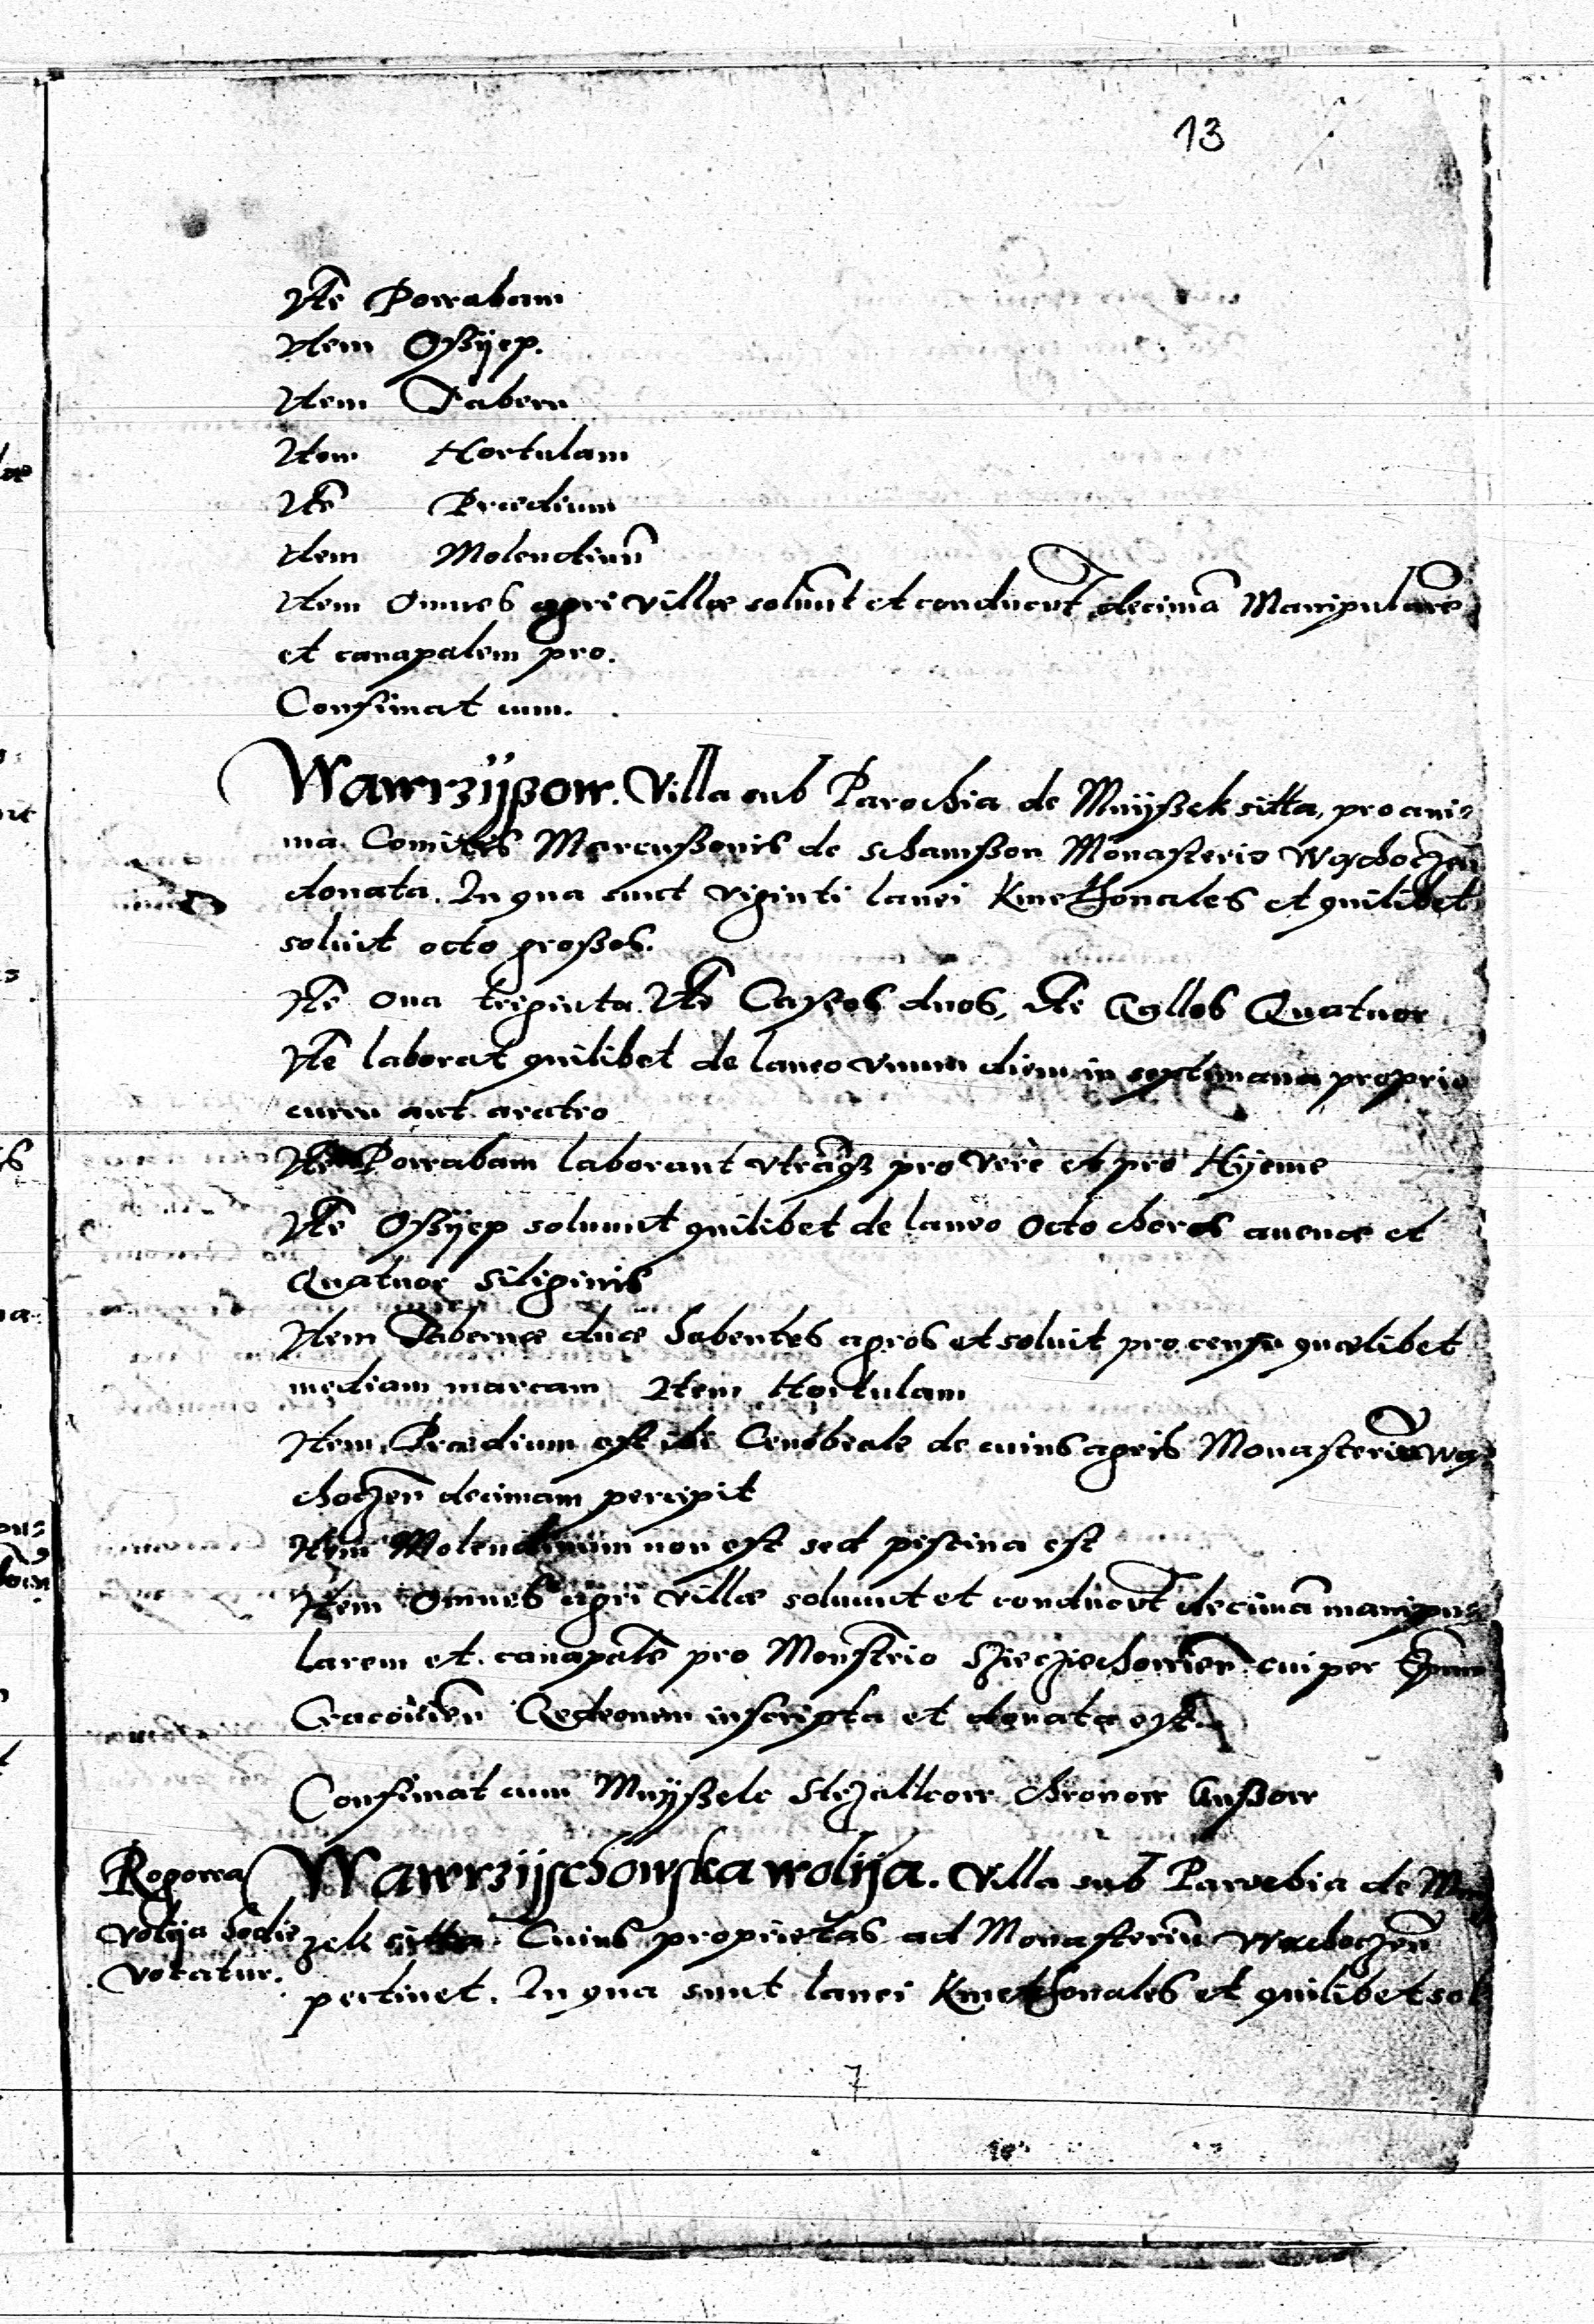 13
Itē Powabam
Item Oßÿep.
Item Tabern
Item Hortulam
Itē Prædium
Item Molendinū
Item Omnes agri villæ solūnt et conducūt decimā Manipularē
et canapalem pro.
Confinat cum.
Wawrzÿßow. Villa sub Parochia de Mnÿßek sitta, pro ani-
ma Comitis Marcußonis de schamßon Monasterio Wąchoczeñ
donata. In qua sunt viginti lanei Kmethonales et quilibet
soluit octo großos.
Itē Oua triginta. Itē Caseos duos, Itē Gallos Quatuor
Itē laborat quilibet de laneo vnum diem in septimana proprio
curru aut aratro
Itē Powabam laborant vtrāqꝫ pro Vere et pro Hyeme
Itē Oßÿep soluunt quilibet de laneo Octo choros auenæ et
Quatuor siliginis
Item Tabernæ duæ habentes agros et soluit pro censu quælibet
mediam marcam Item Hortulam
Item Prædium est ibi Cenobiale de cuius agris Monasteriū Wą-
choczeñ decimam percipit
Item Molendinum non est sed piscina est
Item Omnes agri villæ soluunt et conducūt decimā manipu-
larem et canapalē pro Monstrio Sziecziechowieñ cui per Epūm
Cracouieñ Redeonem inscripta et donata est.
Confinat cum Mnÿßek Strzalkow chronow Gußow
Rogowa
volÿa hodie
vocatur.
Wawrzÿschowska wolÿa. Villa sub Parochia de Mnÿ
zek sitta. Cuius proprietas ad Monasteriū Wąchoczeñ
pertinet. In qua sunt lanei Kmethonales et quilibet sol
7